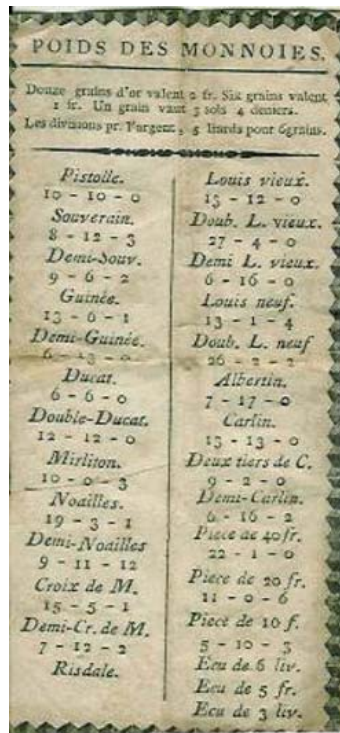 POIDS DES MONNOIES.
Douze grains d'or valent 2 fr. Six grains valent
1 fr. Un grain vaut 3 sols 4 deniers.
Les divisions pr. l'argent, 5 liards pour 6grains.
Pistolle.
10 - 10 - 0
Souverain.
8 - 12 - 3
Demi-Souv.
9 - 6 - 2
Guinée.
13 - 6 - 1
Demi-Guinée.
6 - 13 - 0
Ducat.
6 - 6 - 0
Double-Ducat.
12 - 12 - 0
Mirliton.
10 - 0 - 3
Noailles.
19 - 3 - 1
Demi-Noailles
9 - 11 - 12
Croix de M.
15 - 5 - 1
Demi-Cr. de M.
7 - 12 - 2
Risdale.
Louis vieux.
13 - 12 - 0
Doub. L. vieux.
27 - 4 - 0
Demi L. vieux.
6 - 16 - 0
Louis neuf.
13 - 1 - 4
Doub. L. neuf
26 - 2 - 2
Albertin.
7 - 17 - 0
Carlin.
13 - 13 - 0
Deux tiers de C.
9 - 2 - 0
Demi-Carlin.
6 - 16 - 2
Piece de 40 fr.
22 - 1 - 0
Piece de 20 fr.
11 - 0 - 6
Piece de 10 f.
5 - 10 - 3
Ecu de 6 liv.
Ecu de 5 fr.
Ecu de 3 liv.